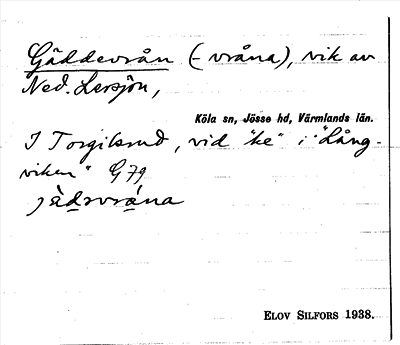 Gäddevrån (-vråna), vik av
Ned. Lersjön,
Köla sn, Jösse hd, Värmlands län.
I Torgilsrud, vid "ke" i "Lång-
viken" G79
ELOV SILFORS 1938.